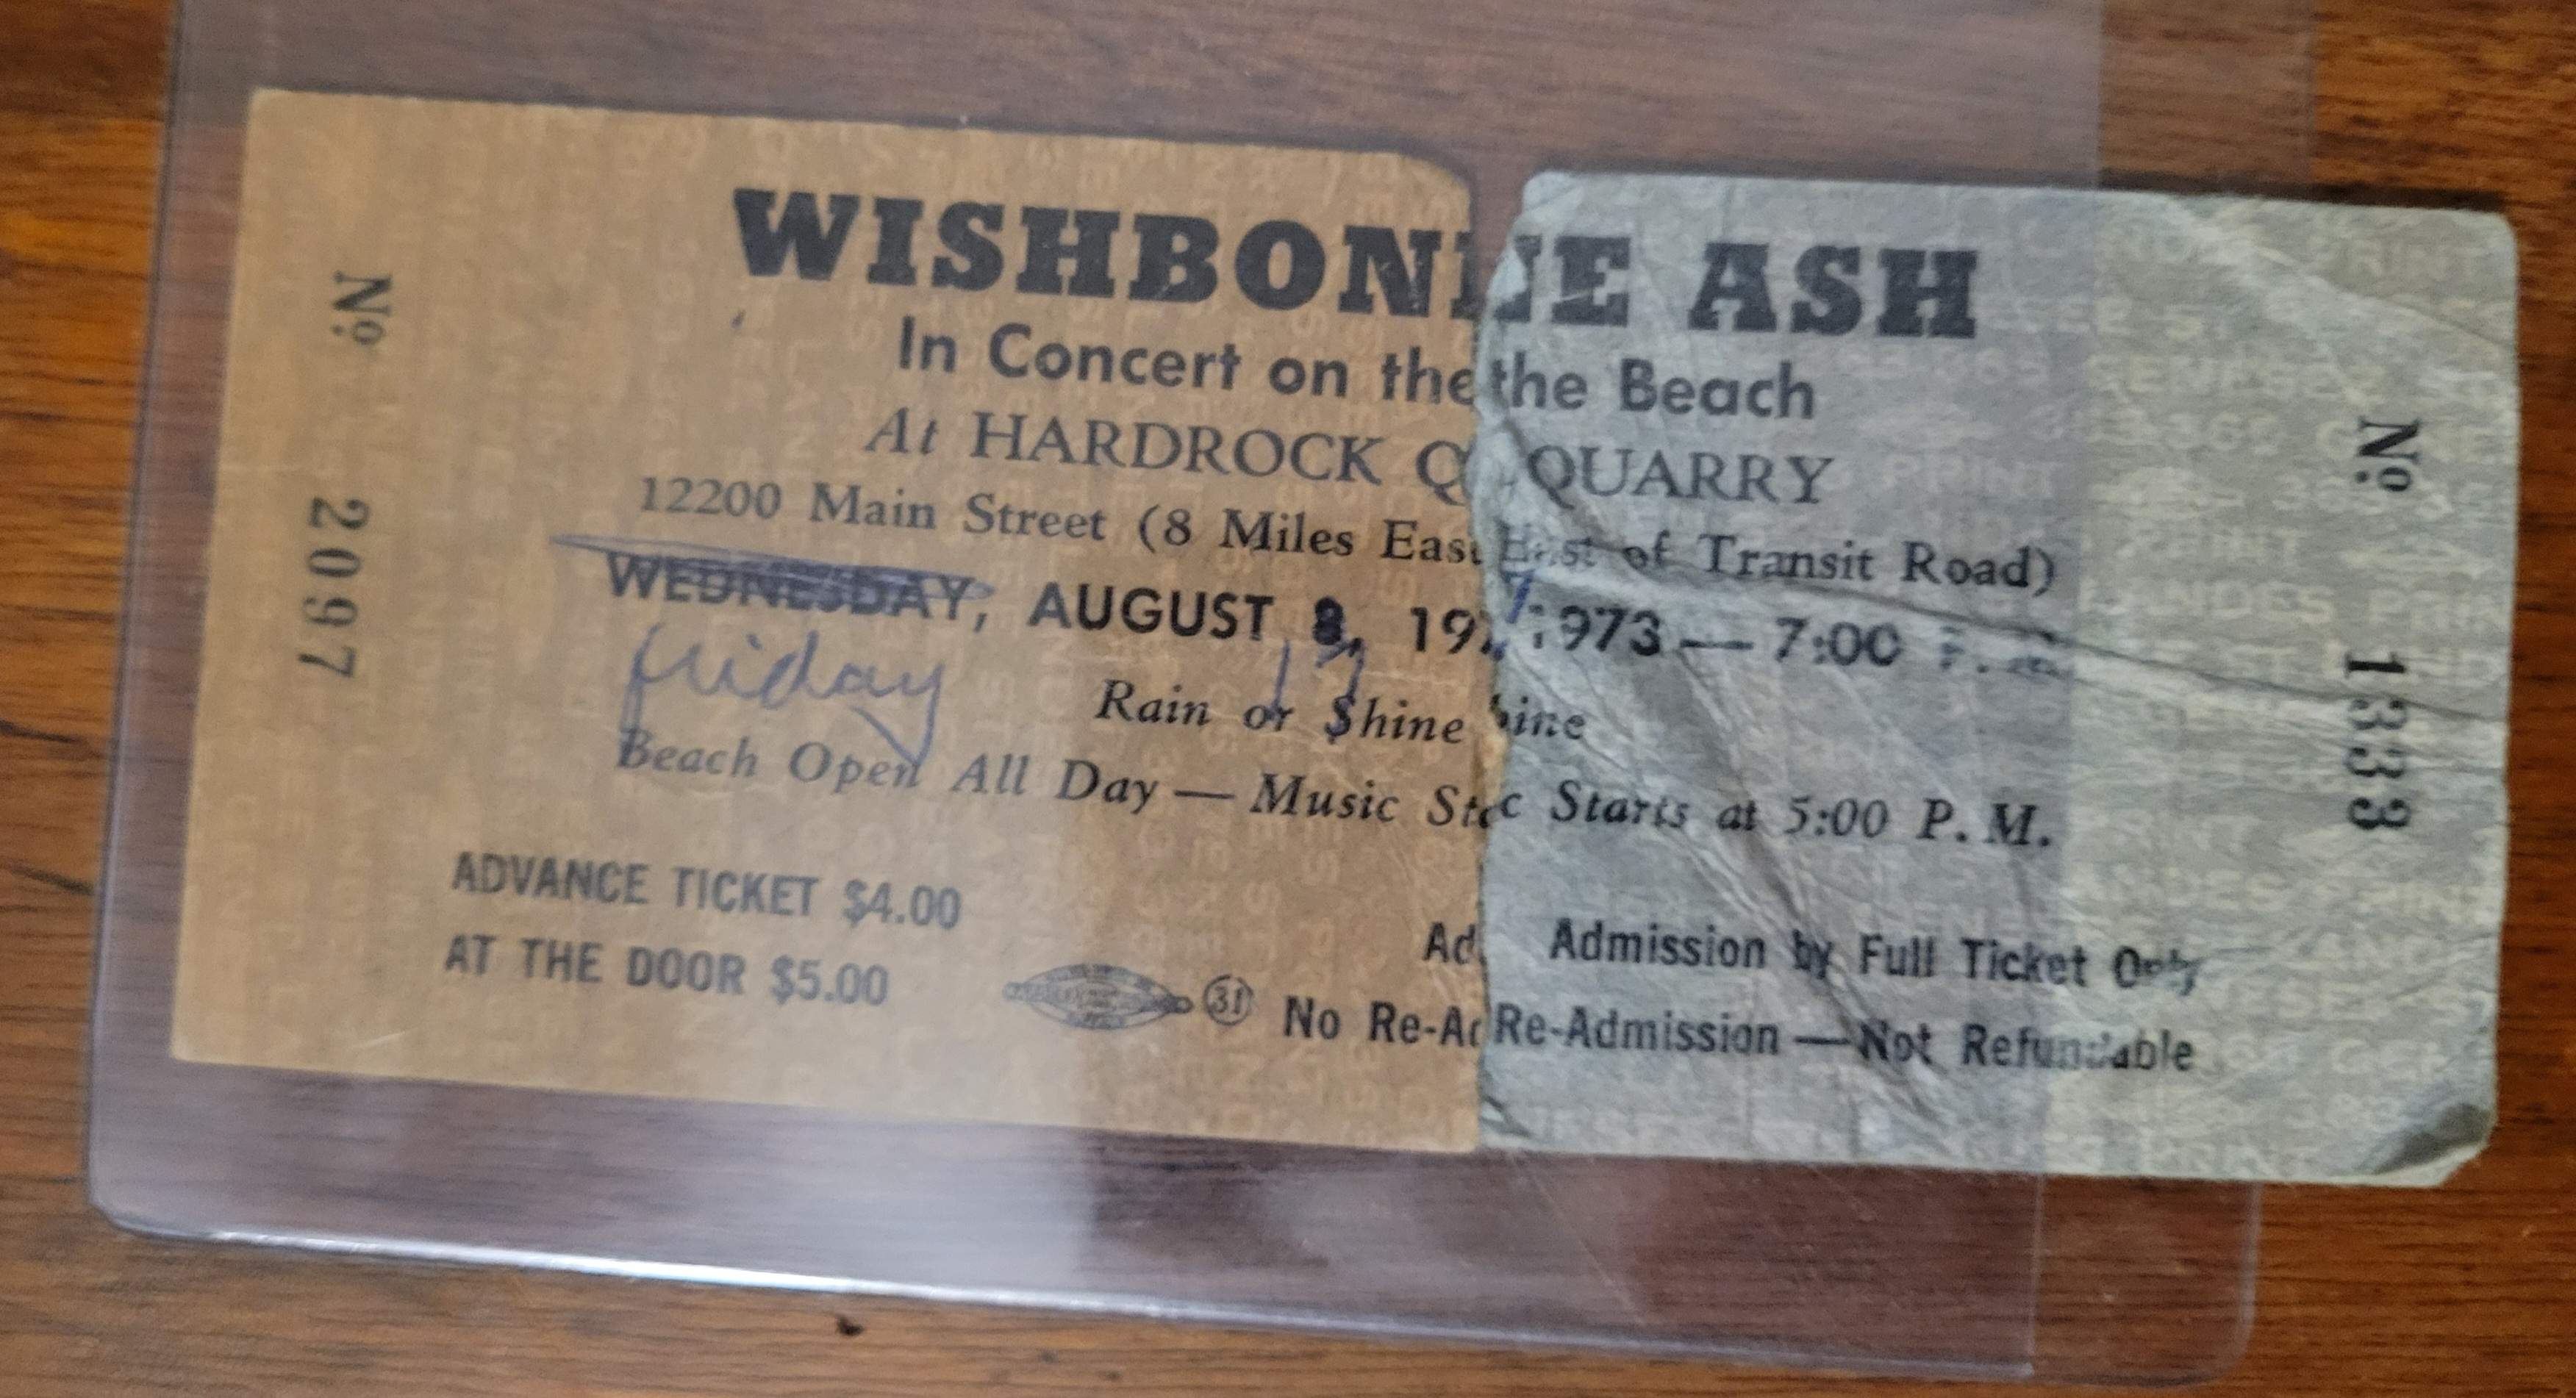 WISHBONNE ASH
In Concert on the the Beach
At HARDROCK Q QUARRY
12200 Main Street (8 Miles East East of Transit Road)
WEDNESDAY, AUGUST 8, 197 1973 — 7:00 P.
friday 17
Rain or Shine hine
Beach Open All Day — Music Sta c Starts at 5:00 P. M.
ADVANCE TICKET $4.00
AT THE DOOR $5.00
31
Ad Admission by Full Ticket Only
No Re-Ad Re-Admission — Not Refundable
No 2097
No 1333